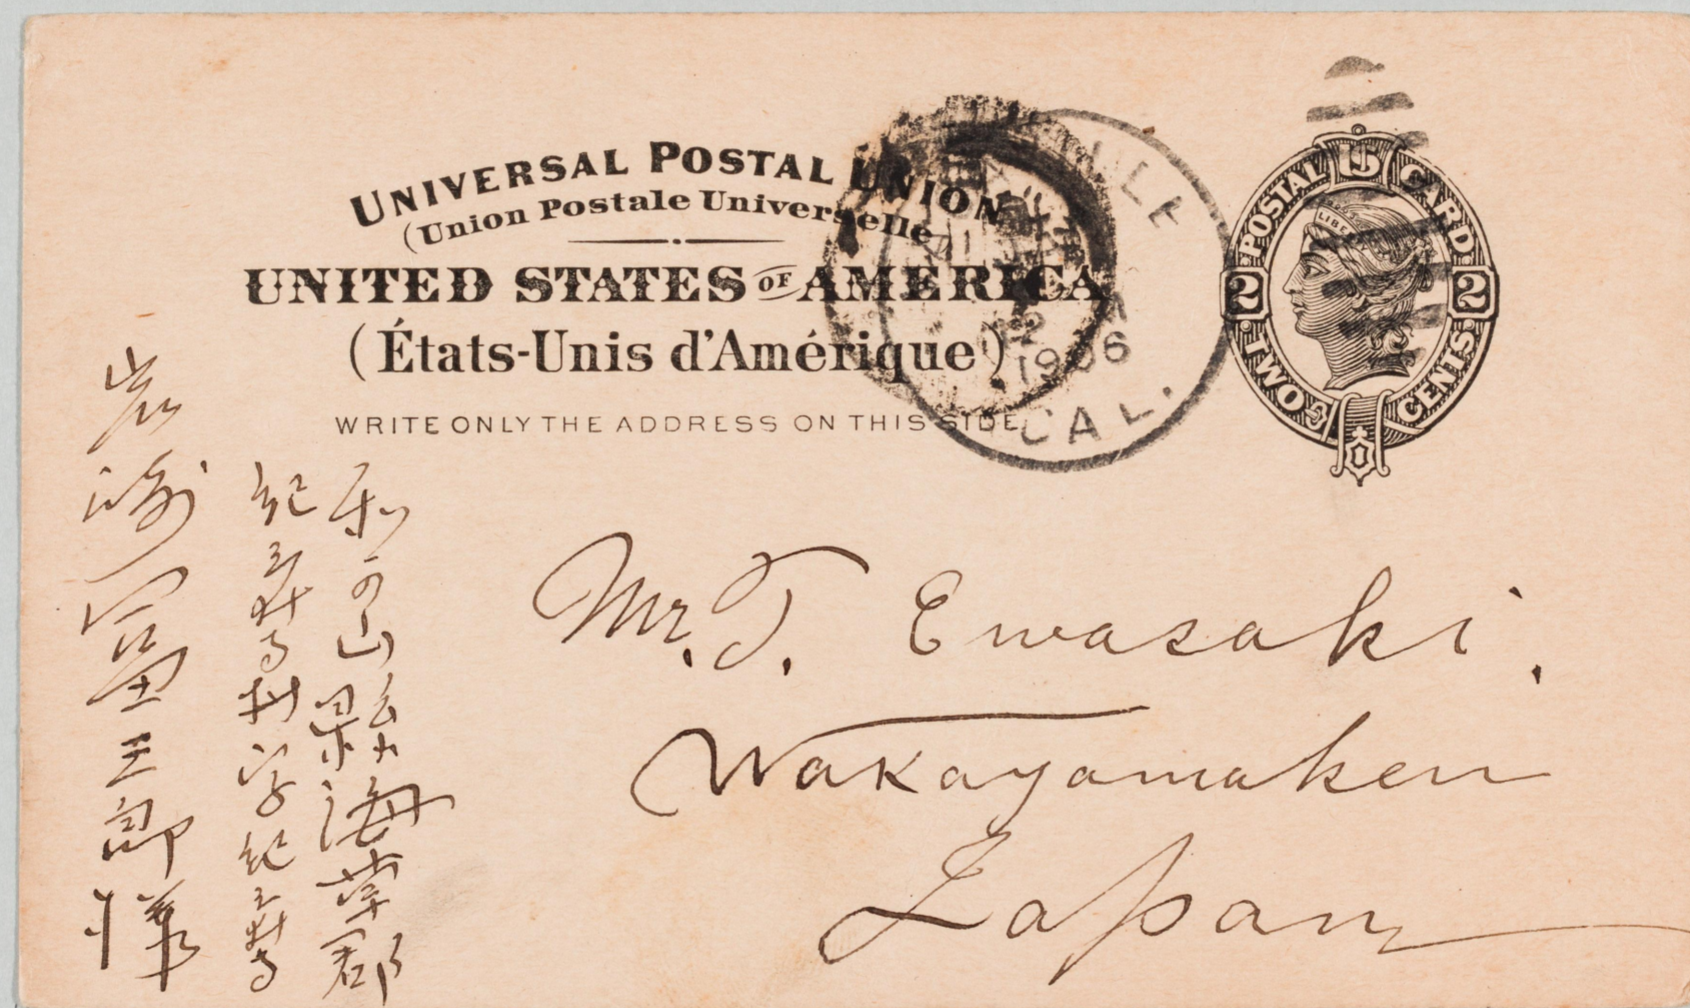 UNIVERSAL POSTAL UNION
(Union Postale Universelle)
UNITED STATES OF AMERICA
(États-Unis d'Amérique)
WRITE ONLY THE ADDRESS ON THIS SIDE
1906
CAL.
POSTAL CARD
U S
2 2
TWO CENTS
Mr. T. Ewasaki.
Wakayamaken
Japan
和歌山縣海草郡
紀三井寺村字紀三井寺
岩崎富三郎様